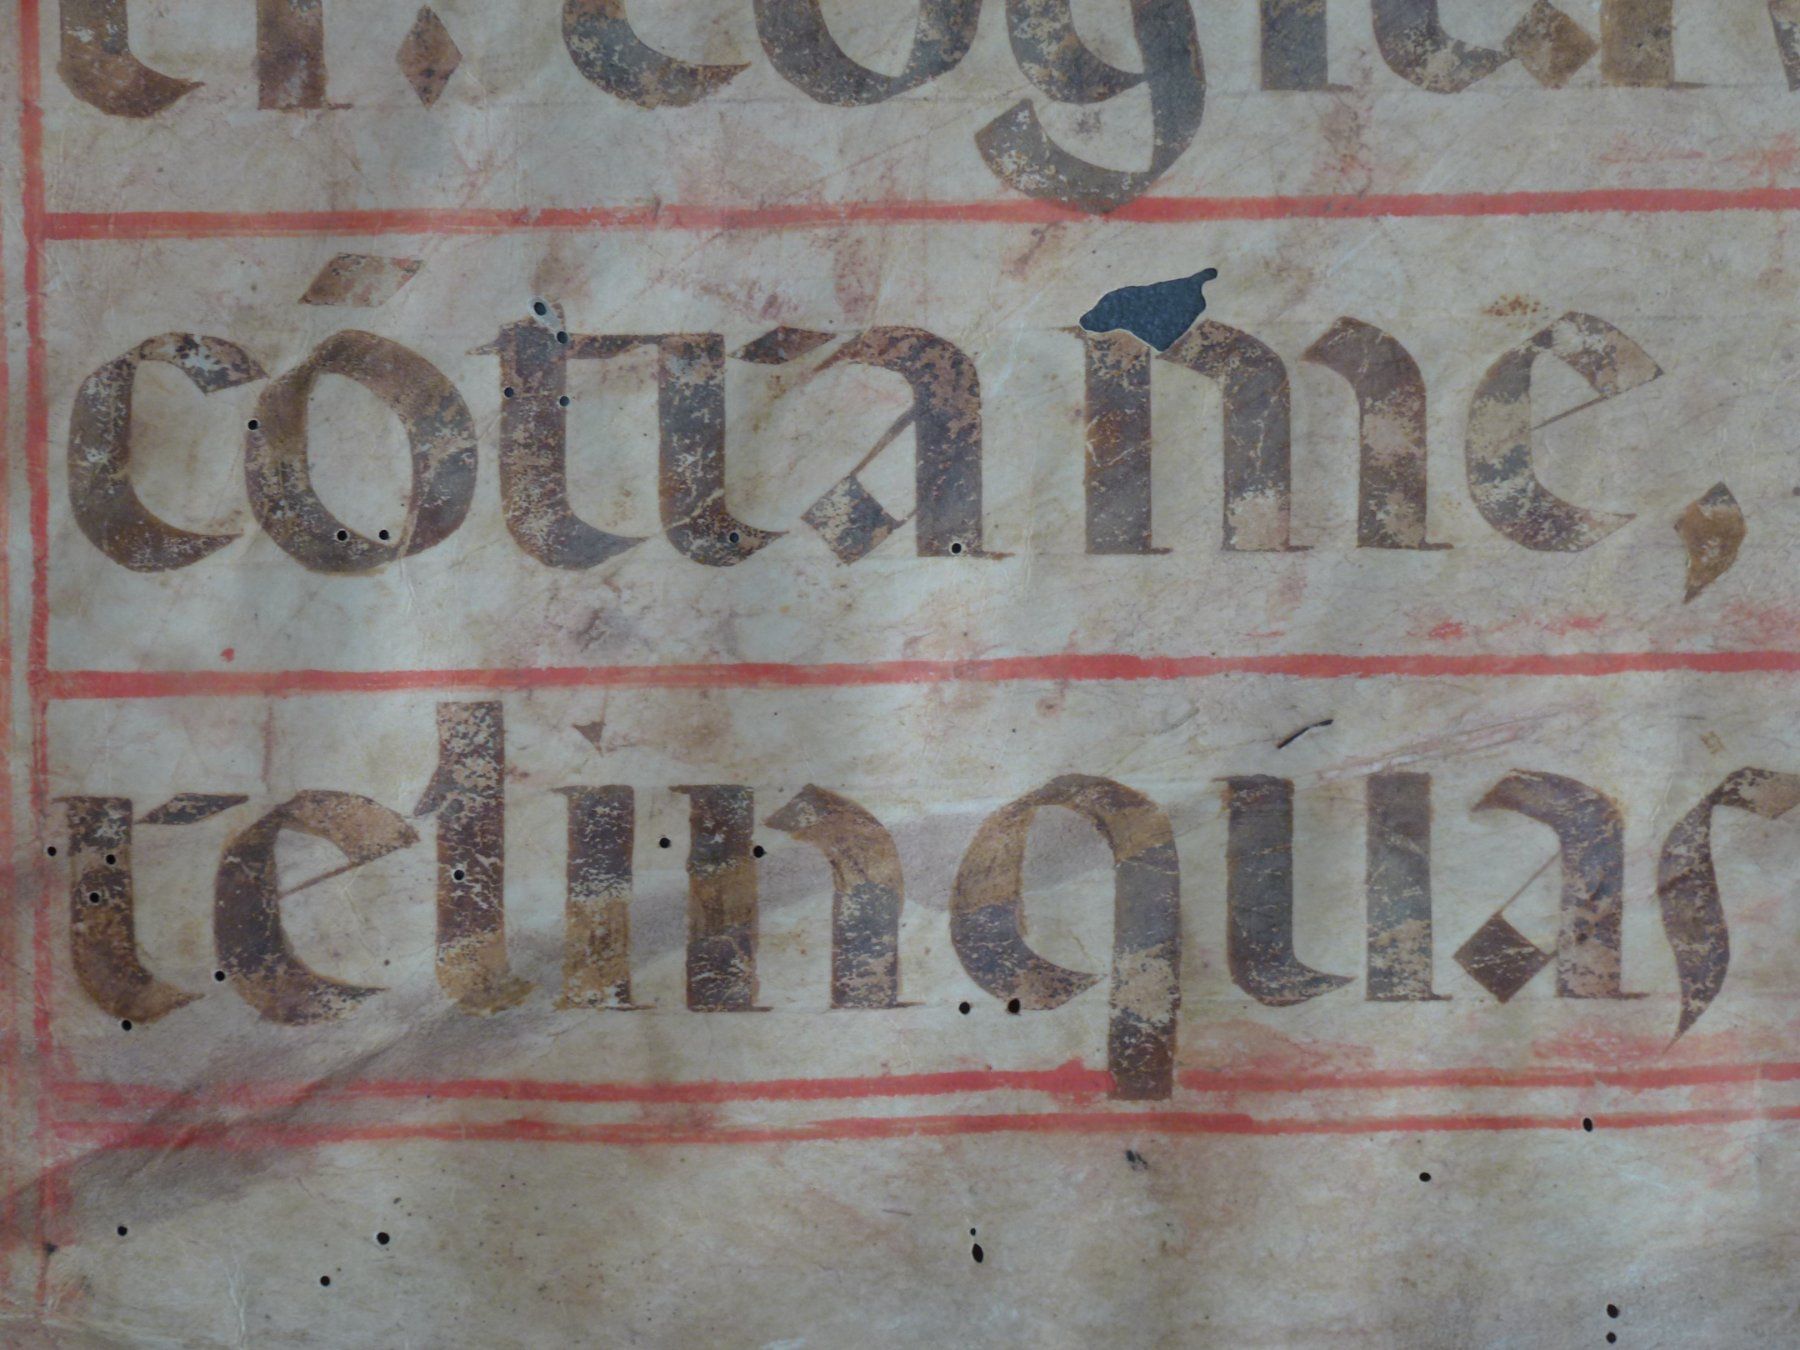 cogita
cótra me,
relinquas